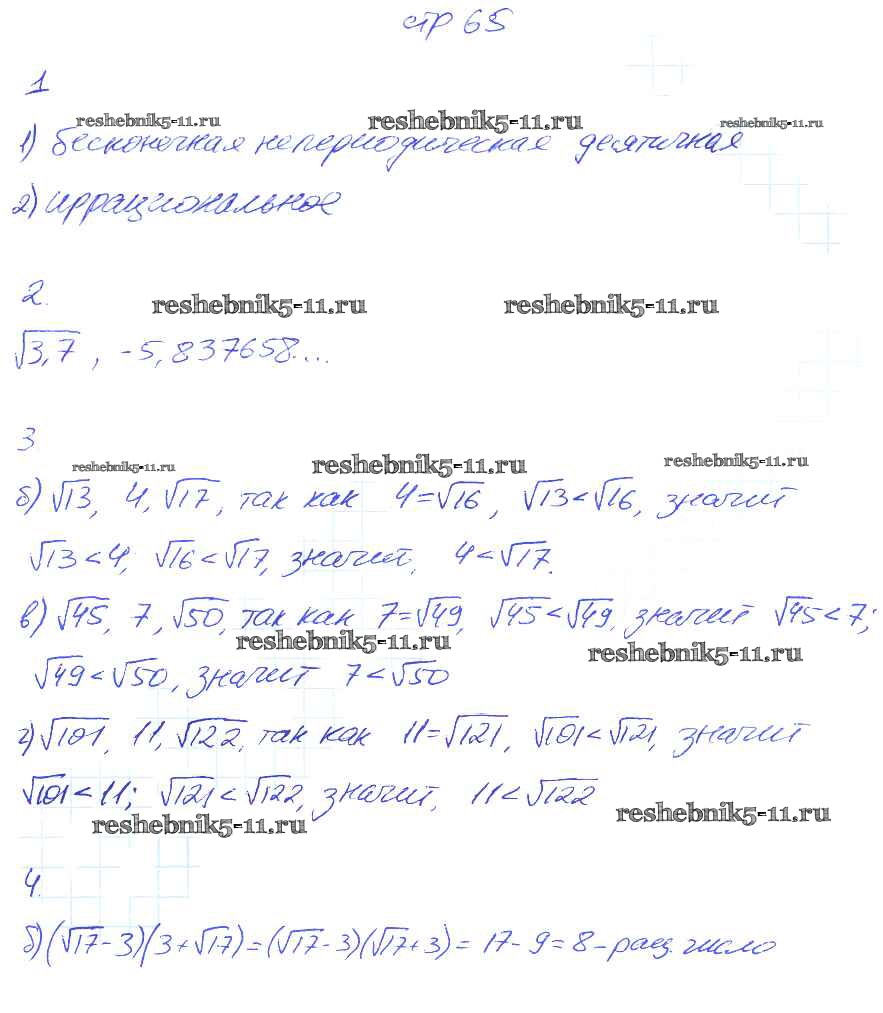 стр 65
1
reshebnik5-11.ru reshebnik5-11.ru reshebnik5-11.ru
1) бесконечная непериодическая десятичная
2) иррациональное
2. reshebnik5-11.ru reshebnik5-11.ru
√3,7 , -5,837658...
3
reshebnik5-11.ru reshebnik5-11.ru reshebnik5-11.ru
б) √13, 4, √17, так как 4=√16, √13<√16, значит
√13<4, √16<√17, значит, 4<√17.
в) √45, 7, √50, так как 7=√49, √45<√49, значит √45<7;
reshebnik5-11.ru reshebnik5-11.ru
√49<√50, значит 7<√50
г) √101, 11, √122, так как 11=√121, √101<√121, значит
√101<11; √121<√122, значит, 11<√122
reshebnik5-11.ru reshebnik5-11.ru
4.
б) (√17-3)(3+√17)=(√17-3)(√17+3)= 17-9=8-рац. число